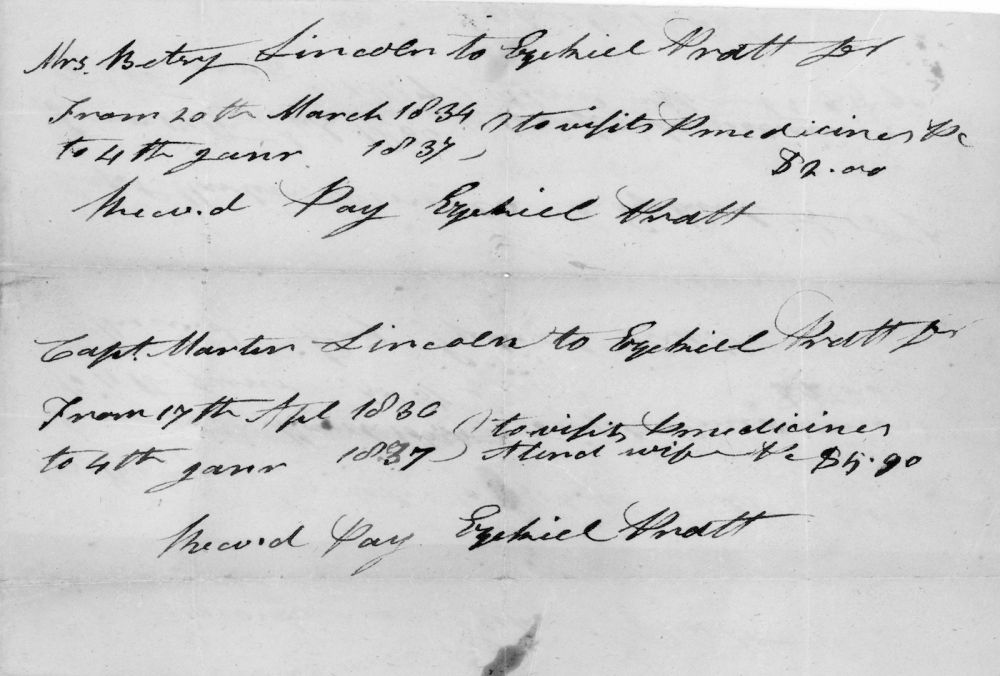 Mrs. Betsy Lincoln to Ezekiel Pratt Dr
From 20th March 1834 } to visits & medicines &c
to 4th janr 1837 $2.00
Recv.d Pay Ezekiel Pratt
Capt. Martin Lincoln to Ezekiel Pratt Dr
From 17th Apl 1836 } to visits & medicines
to 4th janr 1837 Atend wife &c $5.90
Recv.d Pay Ezekiel Pratt